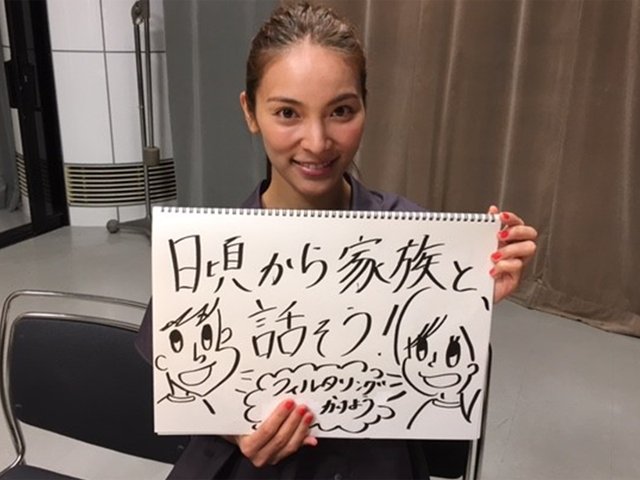 日頃から家族と、
話そう！
フィルタリング
かけよう